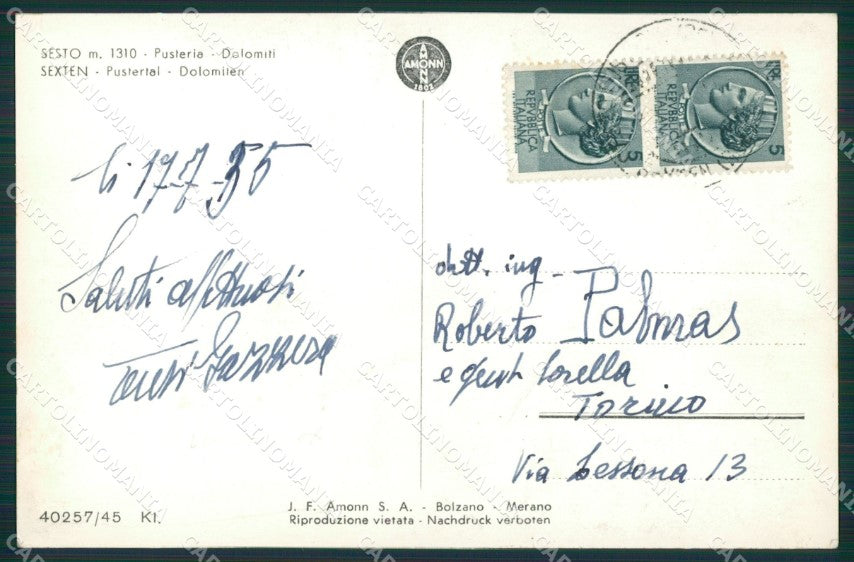 SESTO m. 1310 - Pusteria - Dolomiti
SEXTEN - Pustertal - Dolomiten
AMONN
AMONN
1802
REPVBBLICA
ITALIANA
5
REPVBBLICA
ITALIANA
5
li 17-7-55
Saluti affettuosi
dott. ing.
Roberto Palmas
e gent sorella
Torino
Via Lessona 13
40257/45 Kt.
J. F. Amonn S. A. - Bolzano - Merano
Riproduzione vietata - Nachdruck verboten
CARTOLINOMANIA